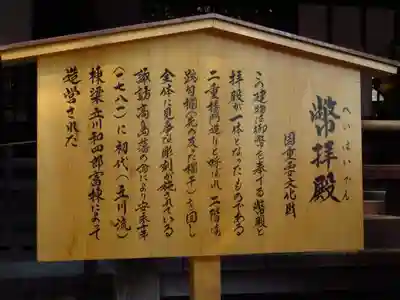 幣拝殿
へいはいでん
国重要文化財
この建物は御幣を奉する幣殿と
拝殿が一体となったものである
二重楼門造りと呼ばれ二階は
跳勾欄(先の反った欄干)を回し
全体に見事な彫刻が施されている
諏訪高島藩の命により安永十年
(一七八一)に初代(立川流)
棟梁立川和四郎富棟によって
造営された